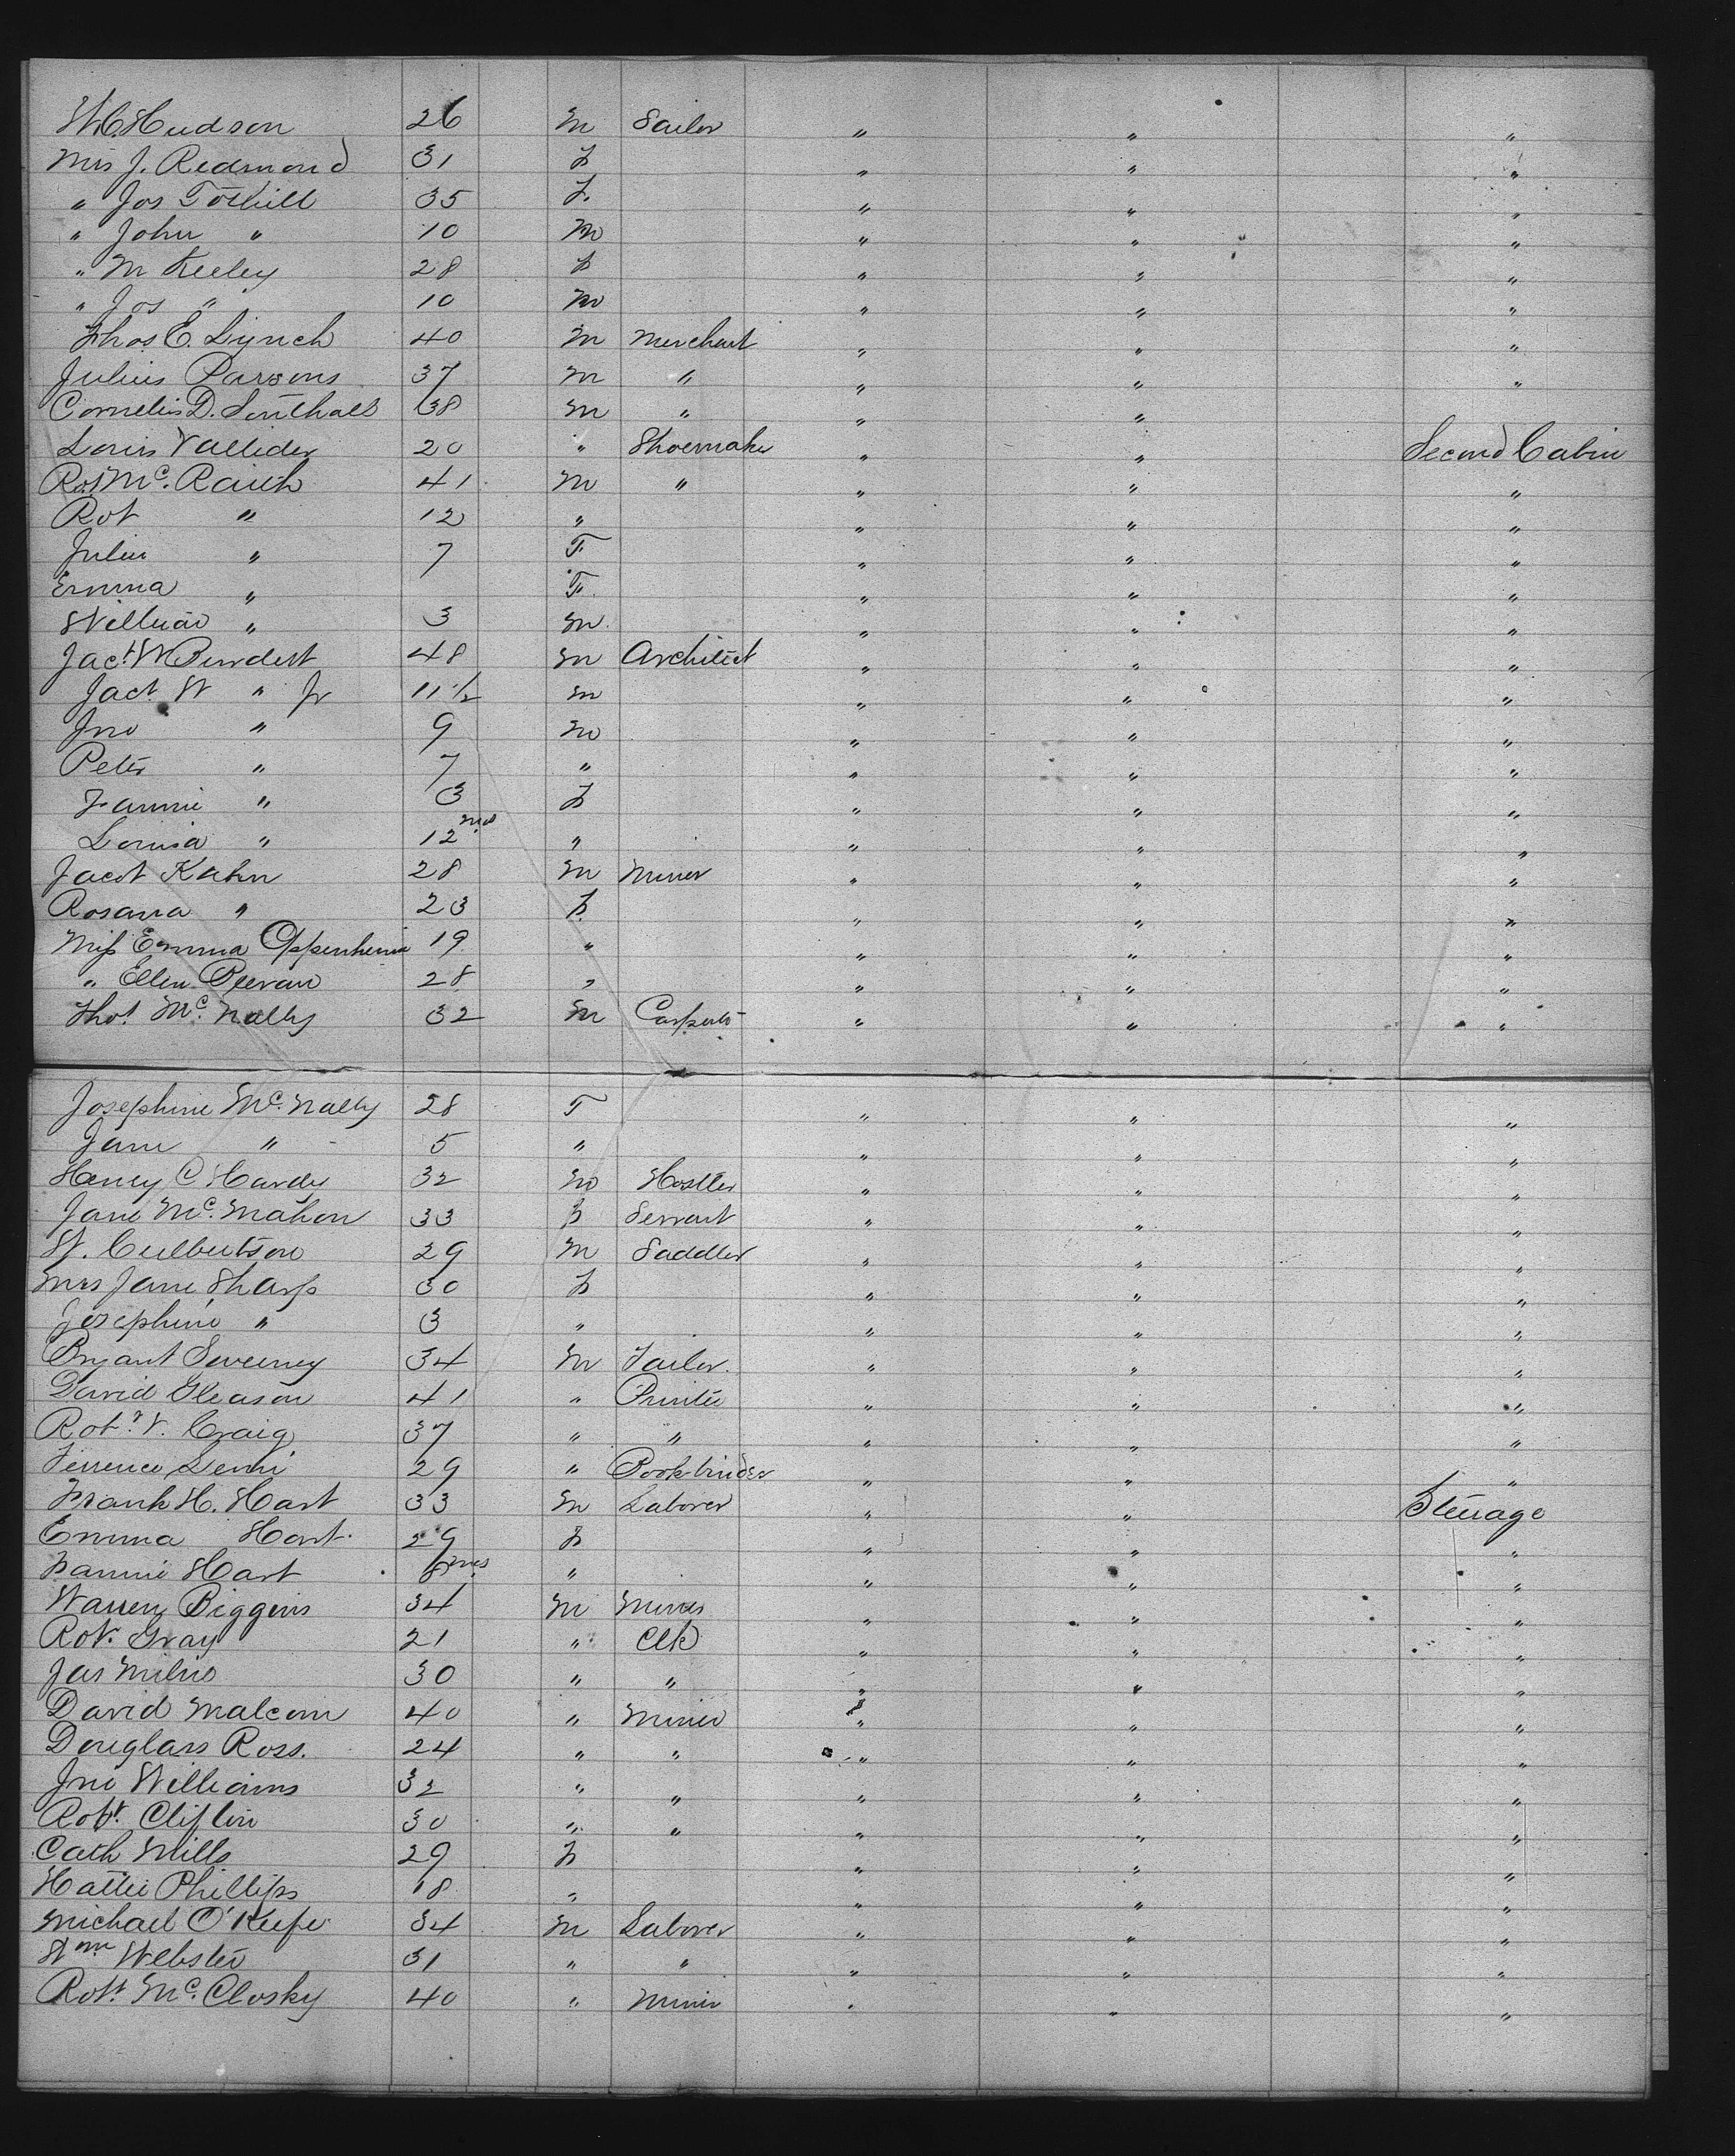 W.C. Hudson 26 M Sailor " " "
Mrs J. Redmond 31 F " " "
" Jos Tothill 35 F. " " "
" John " 10 M " " "
" M Keeley 28 F " " "
" Jos " 10 M " " "
Thos E. Lynch 40 M Merchant " " "
Julius Parsons 37 M " " " "
Cornelius D. 38 M " " " "
Louis 20 " Shoemaker " " Second Cabin
Rot Mc. 41 M " " " "
Rot " 12 " " " "
Julia " 7 F " " "
Emma " F. " " "
William " 3 M. " " "
Jact W Burdett 48 M Architect " " "
Jact. W " Jr 11 1/2 M " " "
Jno " 9 M " " "
Peter " 7 " " " "
Fannie " 3 F " " "
Louisa " 12 mos " " " "
Jacob Kahn 28 M Miner " " "
Rosana " 23 F " " "
Miss Emma Oppenheim 19 " " " "
" Ellen 28 " " " "
Thos. Mc. Nally 32 M " " "
Josephine Mc. Nally 28 F " " "
Jane " 5 " " " "
Henry C Hardy 32 M Hostler " " "
Jane Mc. Mahon 33 F Servant " " "
W. Culbertson 29 M Saddler " " "
Mrs Jane Sharp 30 F " " "
Josephine " 3 " " " "
Bryant Sweeney 34 M Tailor. " " "
David Gleason 41 " Printer " " "
Robt. V. Craig 37 " " " " "
Terrence 29 " Bookbinder " " "
Frank H. Hart 33 M Laborer " " Steerage
Emma Hart. 29 F " " "
Fannie Hart 8 mos " " " "
Warren Biggins 34 M Miner " " "
Robt. Gray 21 " Clk " " "
Jas Milns 30 " " " " "
David Malcom 40 " Miner " " "
Douglass Ross. 24 " " " " "
Jno Williams 32 " " " " "
Robt. 30 " " " " "
Cath Mills 29 F " " "
Hattie Phillips 18 " " " "
Michael O'Keefe 34 M Laborer " " "
Wm Webster 31 " " " " "
Robt. Mc. Closky 40 " Miner " " "